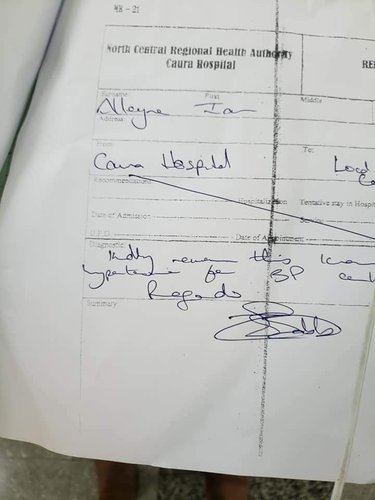 MR - 21
North Central Regional Health Authority
Caura Hospital
RE
Surname First Middle
Alleyne Ian
Address:
From: To:
Caura Hospital Local
Recommendations:
Hospitalization Tentative stay in Hospit
Date of Admission Service
O.P.D. Date of Appointment
Diagnostic:
Kindly review this known
hypertensive for BP cont
Regards
Summary: